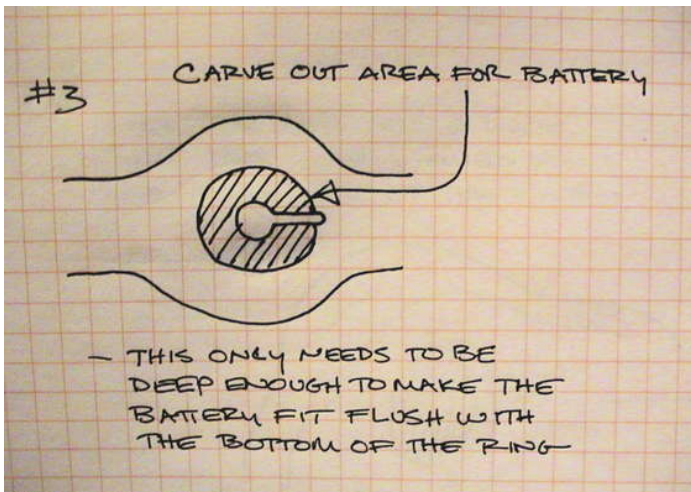 CARVE OUT AREA FOR BATTERY
#3
– THIS ONLY NEEDS TO BE
DEEP ENOUGH TO MAKE THE
BATTERY FIT FLUSH WITH
THE BOTTOM OF THE RING